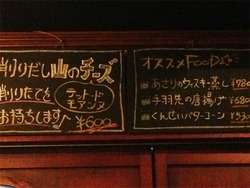 削りだし山のチーズ
削りたてを
テット・ド・モアンヌ
お持ちします
¥600
オススメFOOD☆
あさりのウィスキー蒸し ¥780
手羽先の唐揚げ
くんせいバターコーン